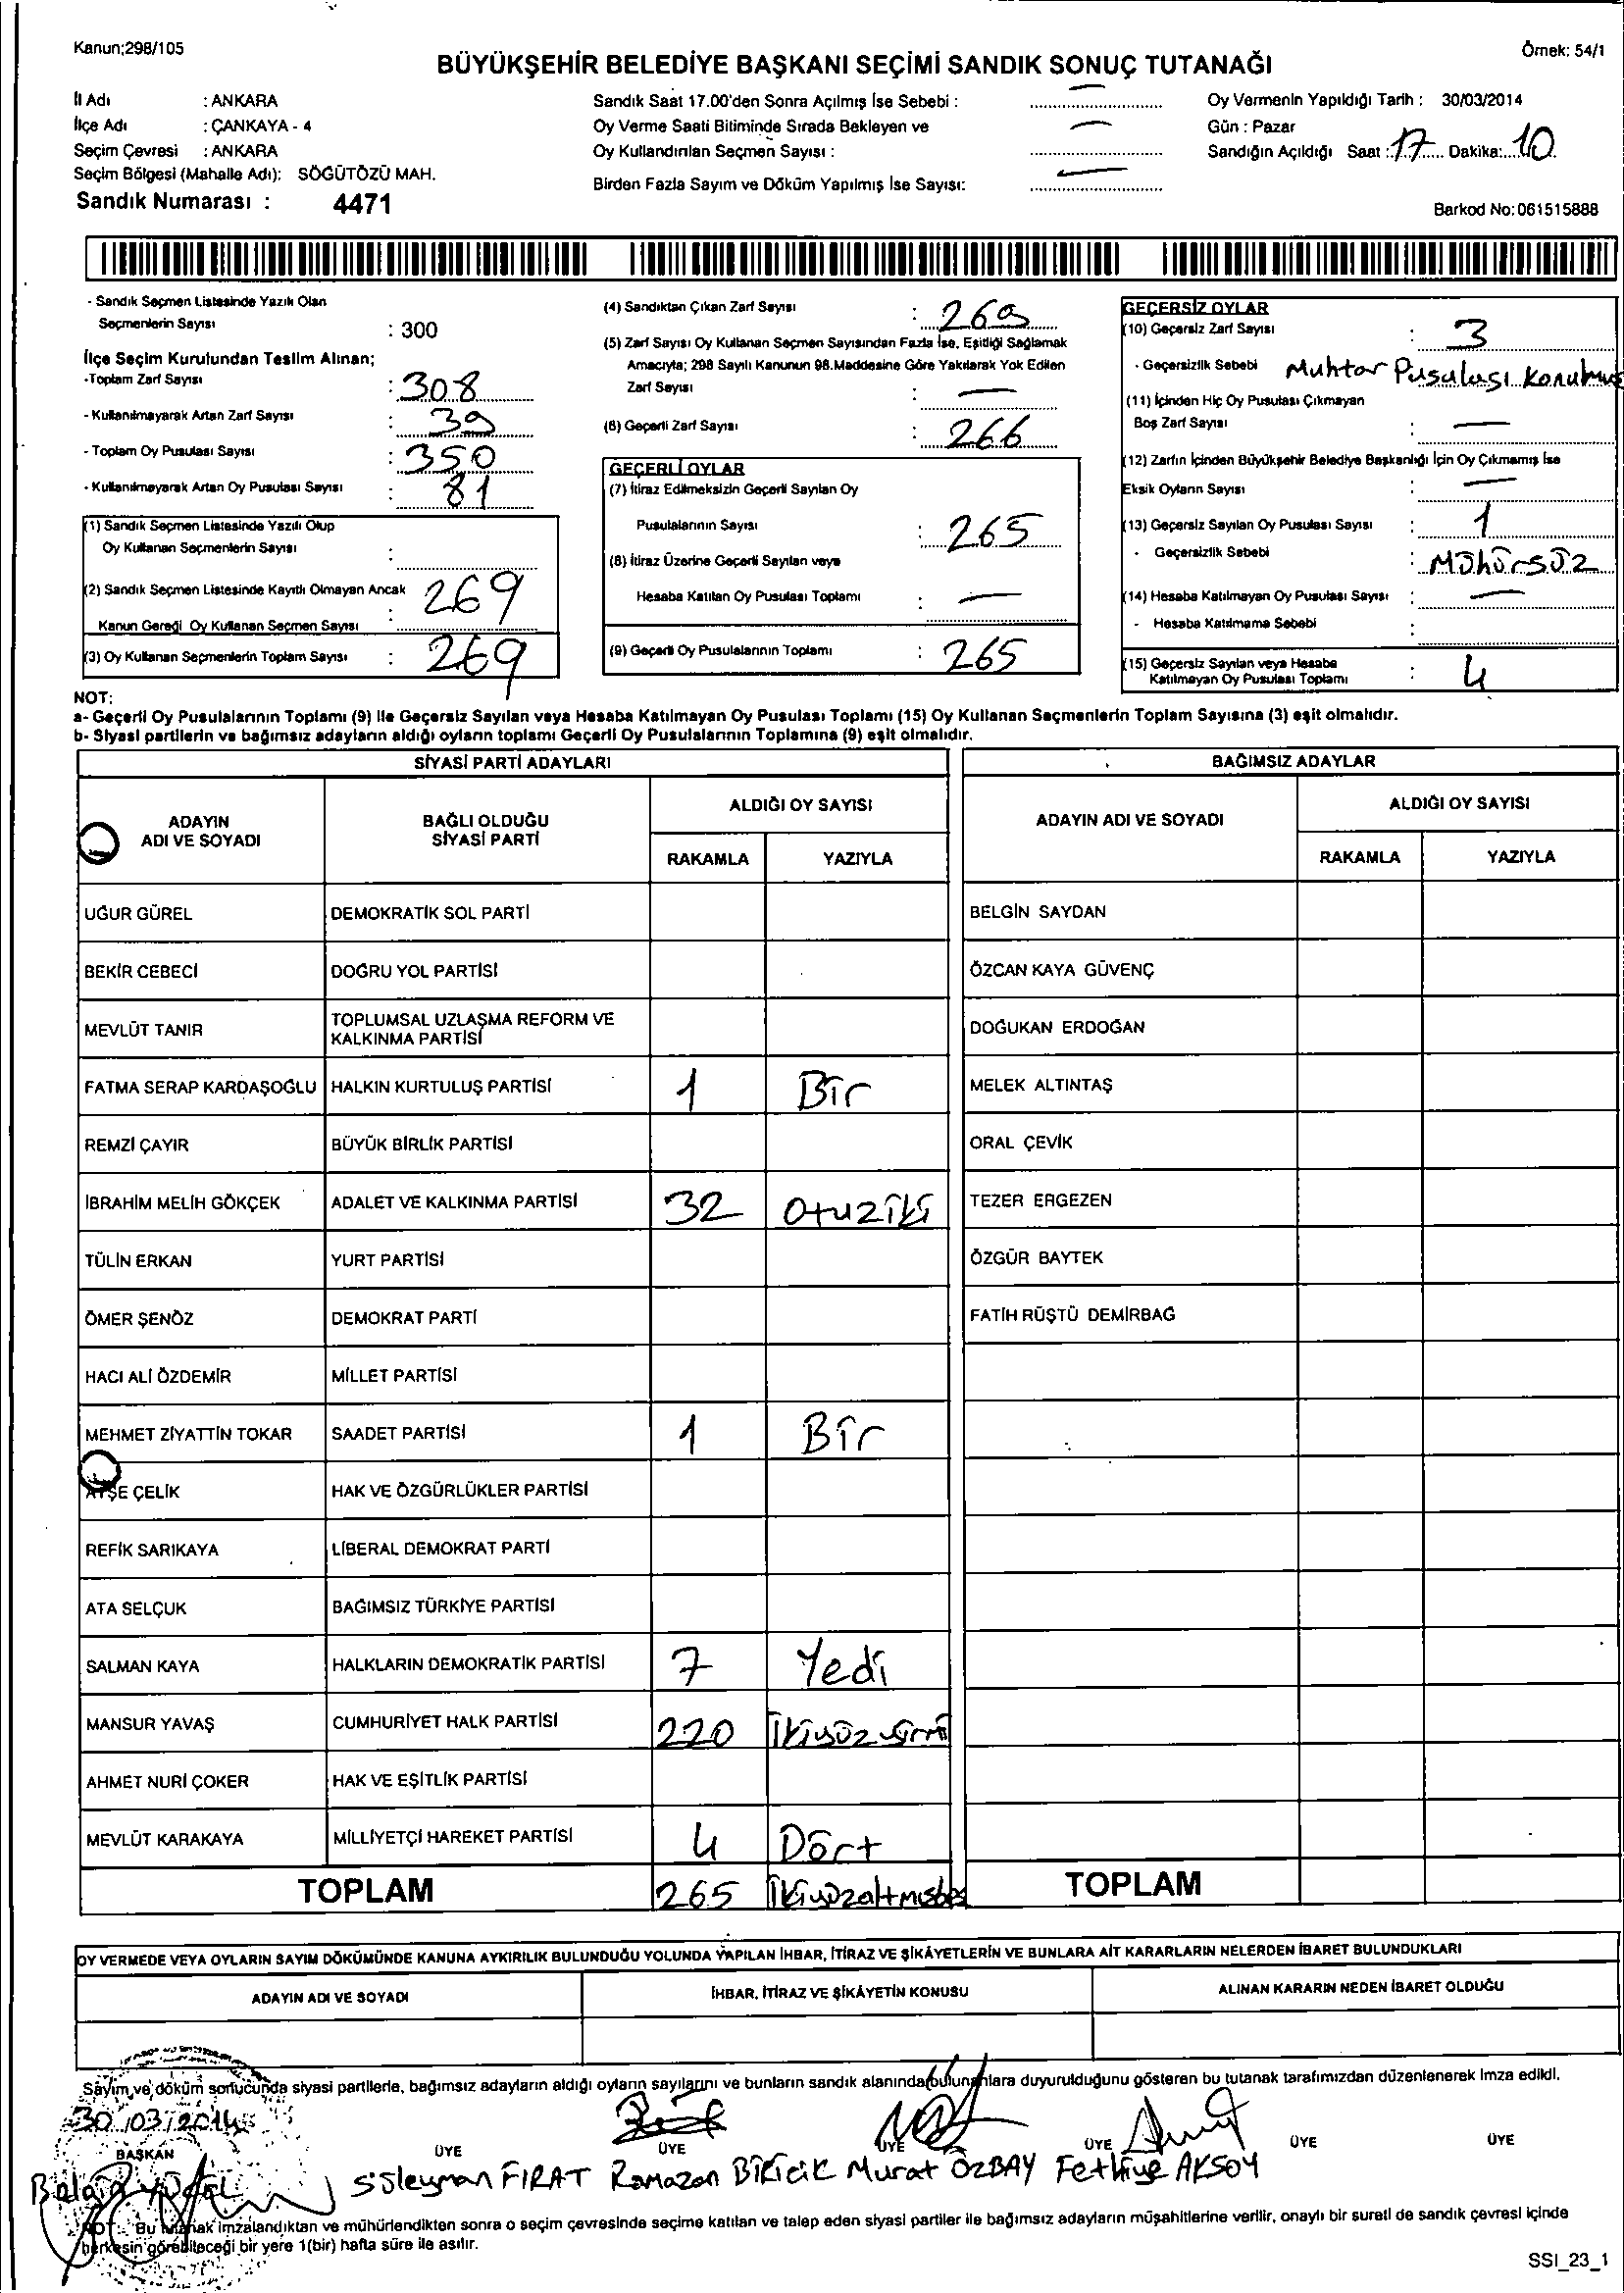 Kanun;298/105
Örnek: 54/1
BÜYÜKŞEHİR BELEDİYE BAŞKANI SEÇİMİ SANDIK SONUÇ TUTANAĞI
İl Adı : ANKARA
İlçe Adı : ÇANKAYA - 4
Seçim Çevresi : ANKARA
Seçim Bölgesi (Mahalle Adı): SÖĞÜTÖZÜ MAH.
Sandık Numarası : 4471
Sandık Saat 17.00'den Sonra Açılmış İse Sebebi : —
Oy Verme Saati Bitiminde Sırada Bekleyen ve
Oy Kullandırılan Seçmen Sayısı : —
Birden Fazla Sayım ve Döküm Yapılmış İse Sayısı: —
Oy Vermenin Yapıldığı Tarih : 30/03/2014
Gün : Pazar
Sandığın Açıldığı Saat : 17 Dakika: 10
Barkod No: 061515888
- Sandık Seçmen Listesinde Yazılı Olan
Seçmenlerin Sayısı : 300
İlçe Seçim Kurulundan Teslim Alınan;
-Toplam Zarf Sayısı : 308
- Kullanılmayarak Artan Zarf Sayısı : 39
- Toplam Oy Pusulası Sayısı : 350
- Kullanılmayarak Artan Oy Pusulası Sayısı : 81
(1) Sandık Seçmen Listesinde Yazılı Olup
Oy Kullanan Seçmenlerin Sayısı :
(2) Sandık Seçmen Listesinde Kayıtlı Olmayan Ancak
Kanun Gereği Oy Kullanan Seçmen Sayısı : 269
(3) Oy Kullanan Seçmenlerin Toplam Sayısı : 269
(4) Sandıktan Çıkan Zarf Sayısı : 269
(5) Zarf Sayısı Oy Kullanan Seçmen Sayısından Fazla İse, Eşitliği Sağlamak
Amacıyla; 298 Sayılı Kanunun 98.Maddesine Göre Yakılarak Yok Edilen
Zarf Sayısı : —
(6) Geçerli Zarf Sayısı : 266
GEÇERLİ OYLAR
(7) İtiraz Edilmeksizin Geçerli Sayılan Oy
Pusulalarının Sayısı : 265
(8) İtiraz Üzerine Geçerli Sayılan veya
Hesaba Katılan Oy Pusulası Toplamı : —
(9) Geçerli Oy Pusulalarının Toplamı : 265
GEÇERSİZ OYLAR
(10) Geçersiz Zarf Sayısı : 3
- Geçersizlik Sebebi Muhtar Pusulası Konulmuş
(11) İçinden Hiç Oy Pusulası Çıkmayan
Boş Zarf Sayısı : —
(12) Zarfın İçinden Büyükşehir Belediye Başkanlığı İçin Oy Çıkmamış İse
Eksik Oyların Sayısı : —
(13) Geçersiz Sayılan Oy Pusulası Sayısı : 1
- Geçersizlik Sebebi : Mühürsüz
(14) Hesaba Katılmayan Oy Pusulası Sayısı : —
- Hesaba Katılmama Sebebi :
(15) Geçersiz Sayılan veya Hesaba
Katılmayan Oy Pusulası Toplamı : 4
NOT:
a- Geçerli Oy Pusulalarının Toplamı (9) ile Geçersiz Sayılan veya Hesaba Katılmayan Oy Pusulası Toplamı (15) Oy Kullanan Seçmenlerin Toplam Sayısına (3) eşit olmalıdır.
b- Siyasi partilerin ve bağımsız adayların aldığı oyların toplamı Geçerli Oy Pusulalarının Toplamına (9) eşit olmalıdır.
SİYASİ PARTİ ADAYLARI
ADAYIN ADI VE SOYADI BAĞLI OLDUĞU SİYASİ PARTİ ALDIĞI OY SAYISI
RAKAMLA YAZIYLA
UĞUR GÜREL DEMOKRATİK SOL PARTİ
BEKİR CEBECİ DOĞRU YOL PARTİSİ
MEVLÜT TANIR TOPLUMSAL UZLAŞMA REFORM VE KALKINMA PARTİSİ
FATMA SERAP KARDAŞOĞLU HALKIN KURTULUŞ PARTİSİ 1 Bir
REMZİ ÇAYIR BÜYÜK BİRLİK PARTİSİ
İBRAHİM MELİH GÖKÇEK ADALET VE KALKINMA PARTİSİ 32 Otuziki
TÜLİN ERKAN YURT PARTİSİ
ÖMER ŞENÖZ DEMOKRAT PARTİ
HACI ALİ ÖZDEMİR MİLLET PARTİSİ
MEHMET ZİYATTİN TOKAR SAADET PARTİSİ 1 Bir
AYŞE ÇELİK HAK VE ÖZGÜRLÜKLER PARTİSİ
REFİK SARIKAYA LİBERAL DEMOKRAT PARTİ
ATA SELÇUK BAĞIMSIZ TÜRKİYE PARTİSİ
SALMAN KAYA HALKLARIN DEMOKRATİK PARTİSİ 7 Yedi
MANSUR YAVAŞ CUMHURİYET HALK PARTİSİ 220 İkiyüzyirmi
AHMET NURİ ÇOKER HAK VE EŞİTLİK PARTİSİ
MEVLÜT KARAKAYA MİLLİYETÇİ HAREKET PARTİSİ 4 Dört
TOPLAM 265 İkiyüzaltmışbeş
BAĞIMSIZ ADAYLAR
ADAYIN ADI VE SOYADI ALDIĞI OY SAYISI
RAKAMLA YAZIYLA
BELGİN SAYDAN
ÖZCAN KAYA GÜVENÇ
DOĞUKAN ERDOĞAN
MELEK ALTINTAŞ
ORAL ÇEVİK
TEZER ERGEZEN
ÖZGÜR BAYTEK
FATİH RÜŞTÜ DEMİRBAĞ
TOPLAM
OY VERMEDE VEYA OYLARIN SAYIM DÖKÜMÜNDE KANUNA AYKIRILIK BULUNDUĞU YOLUNDA YAPILAN İHBAR, İTİRAZ VE ŞİKÂYETLERİN VE BUNLARA AİT KARARLARIN NELERDEN İBARET BULUNDUKLARI
ADAYIN ADI VE SOYADI İHBAR, İTİRAZ VE ŞİKÂYETİN KONUSU ALINAN KARARIN NEDEN İBARET OLDUĞU
Sayım ve döküm sonucunda siyasi partilerle, bağımsız adayların aldığı oyların sayılarını ve bunların sandık alanında bulunanlara duyurulduğunu gösteren bu tutanak tarafımızdan düzenlenerek imza edildi.
30/03/2014
BAŞKAN ÜYE ÜYE ÜYE ÜYE ÜYE ÜYE
Süleyman FIRAT Ramazan BİRİCİK Murat ÖZBAY Fethiye AKSOY
NOT : Bu tutanak imzalandıktan ve mühürlendikten sonra o seçim çevresinde seçime katılan ve talep eden siyasi partiler ile bağımsız adayların müşahitlerine verilir, onaylı bir sureti de sandık çevresi içinde
herkesin görebileceği bir yere 1(bir) hafta süre ile asılır.
SSI_23_1